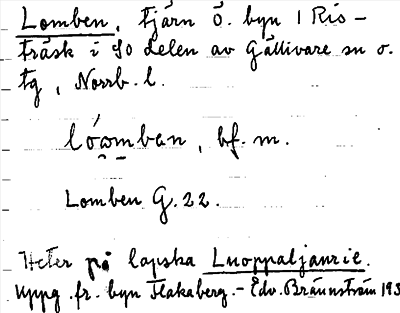 Lomben, tjärn ö. byn 1 Ris-
träsk i SO delen av Gällivare sn o.
tg, Norrb. l.
lóομban, bf. m.
Lomben G. 22.
Heter på lapska Luoppaljaurie.
Uppg. fr. byn Flakaberg. - Edv. Brännström 193